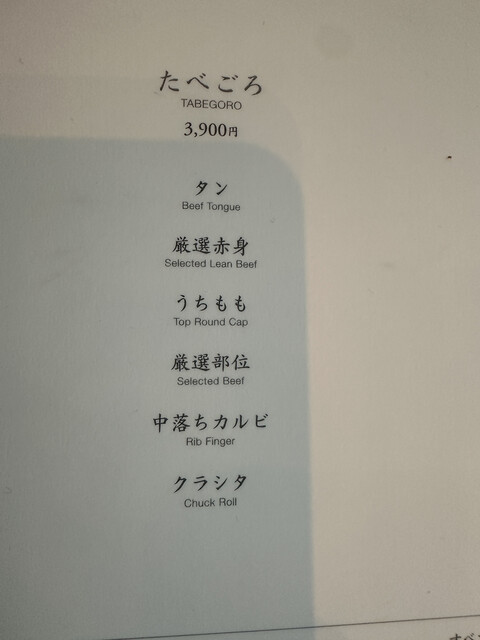 たべごろ
TABEGORO
3,900円
タン
Beef Tongue
厳選赤身
Selected Lean Beef
うちもも
Top Round Cap
厳選部位
Selected Beef
中落ちカルビ
Rib Finger
クラシタ
Chuck Roll